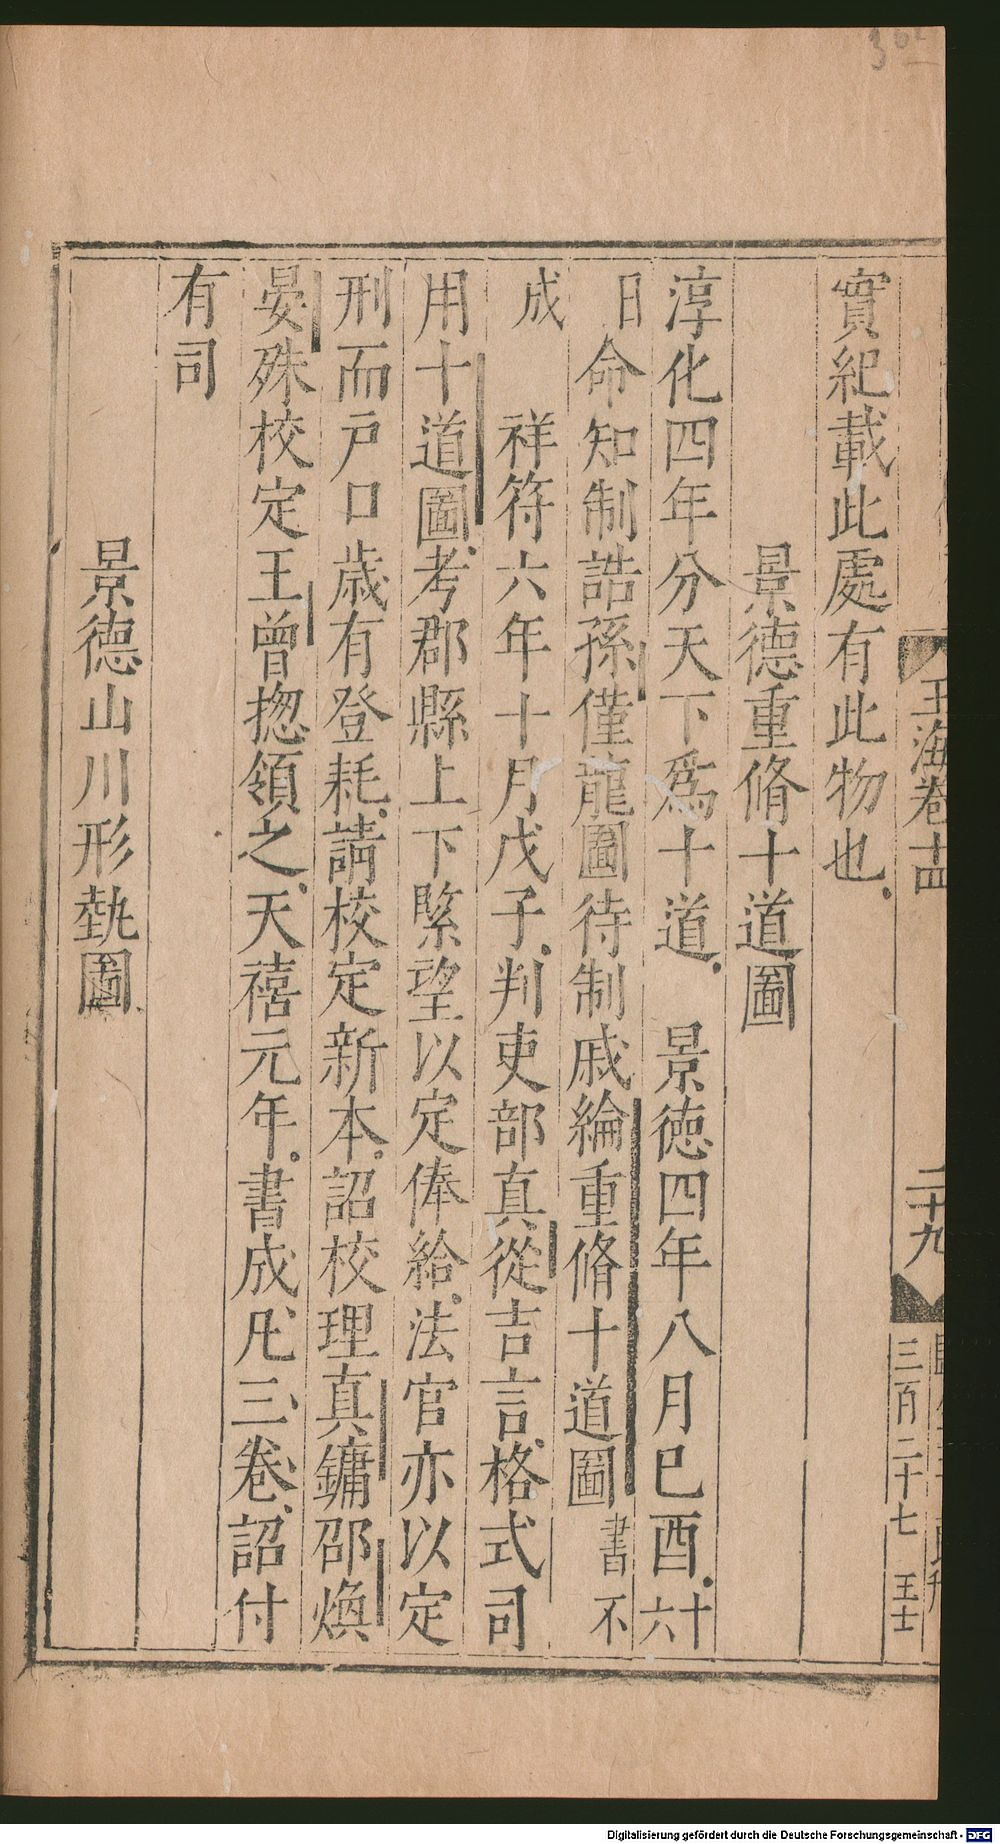 實紀載此處有此物也
景德重脩十道圖
淳化四年分天下爲十道 景德四年八月已酉十六
日命知制誥孫僅龍圖待制戚綸重脩十道圖書不
成 祥符六年十月戊子判吏部真從吉言格式司
用十道圖考郡縣上下緊望以定俸給法官亦以定
刑而戶口歳有登耗請校定新本詔校理真鏞邵煥
晏殊校定王曾揔領之天禧元年書成凡三卷詔付
有司
景德山川形埶圖
玉海卷十四
二十九
三百二十七 王士
Digitalisierung gefördert durch die Deutsche Forschungsgemeinschaft - DFG